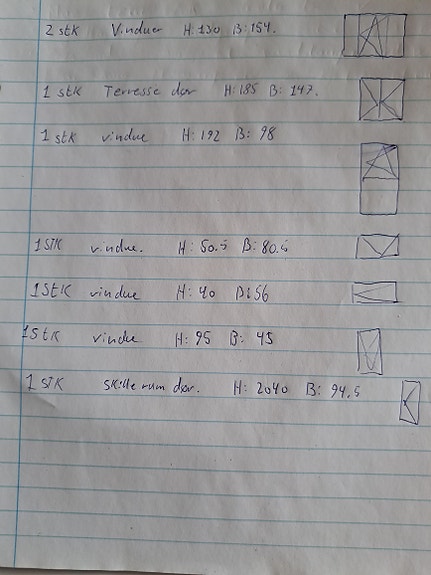 2 stk Vinduer H: 130 B: 154.
1 stk Terresse dør H: 185 B: 147.
1 stk vindue H: 192 B: 98
1 STK vindue. H: 50.5 B: 80.5
1 StK vindue H: 40 B: 56
1 StK vindue H: 95 B: 45
1 STK skille rum dør. H: 2040 B: 94.5